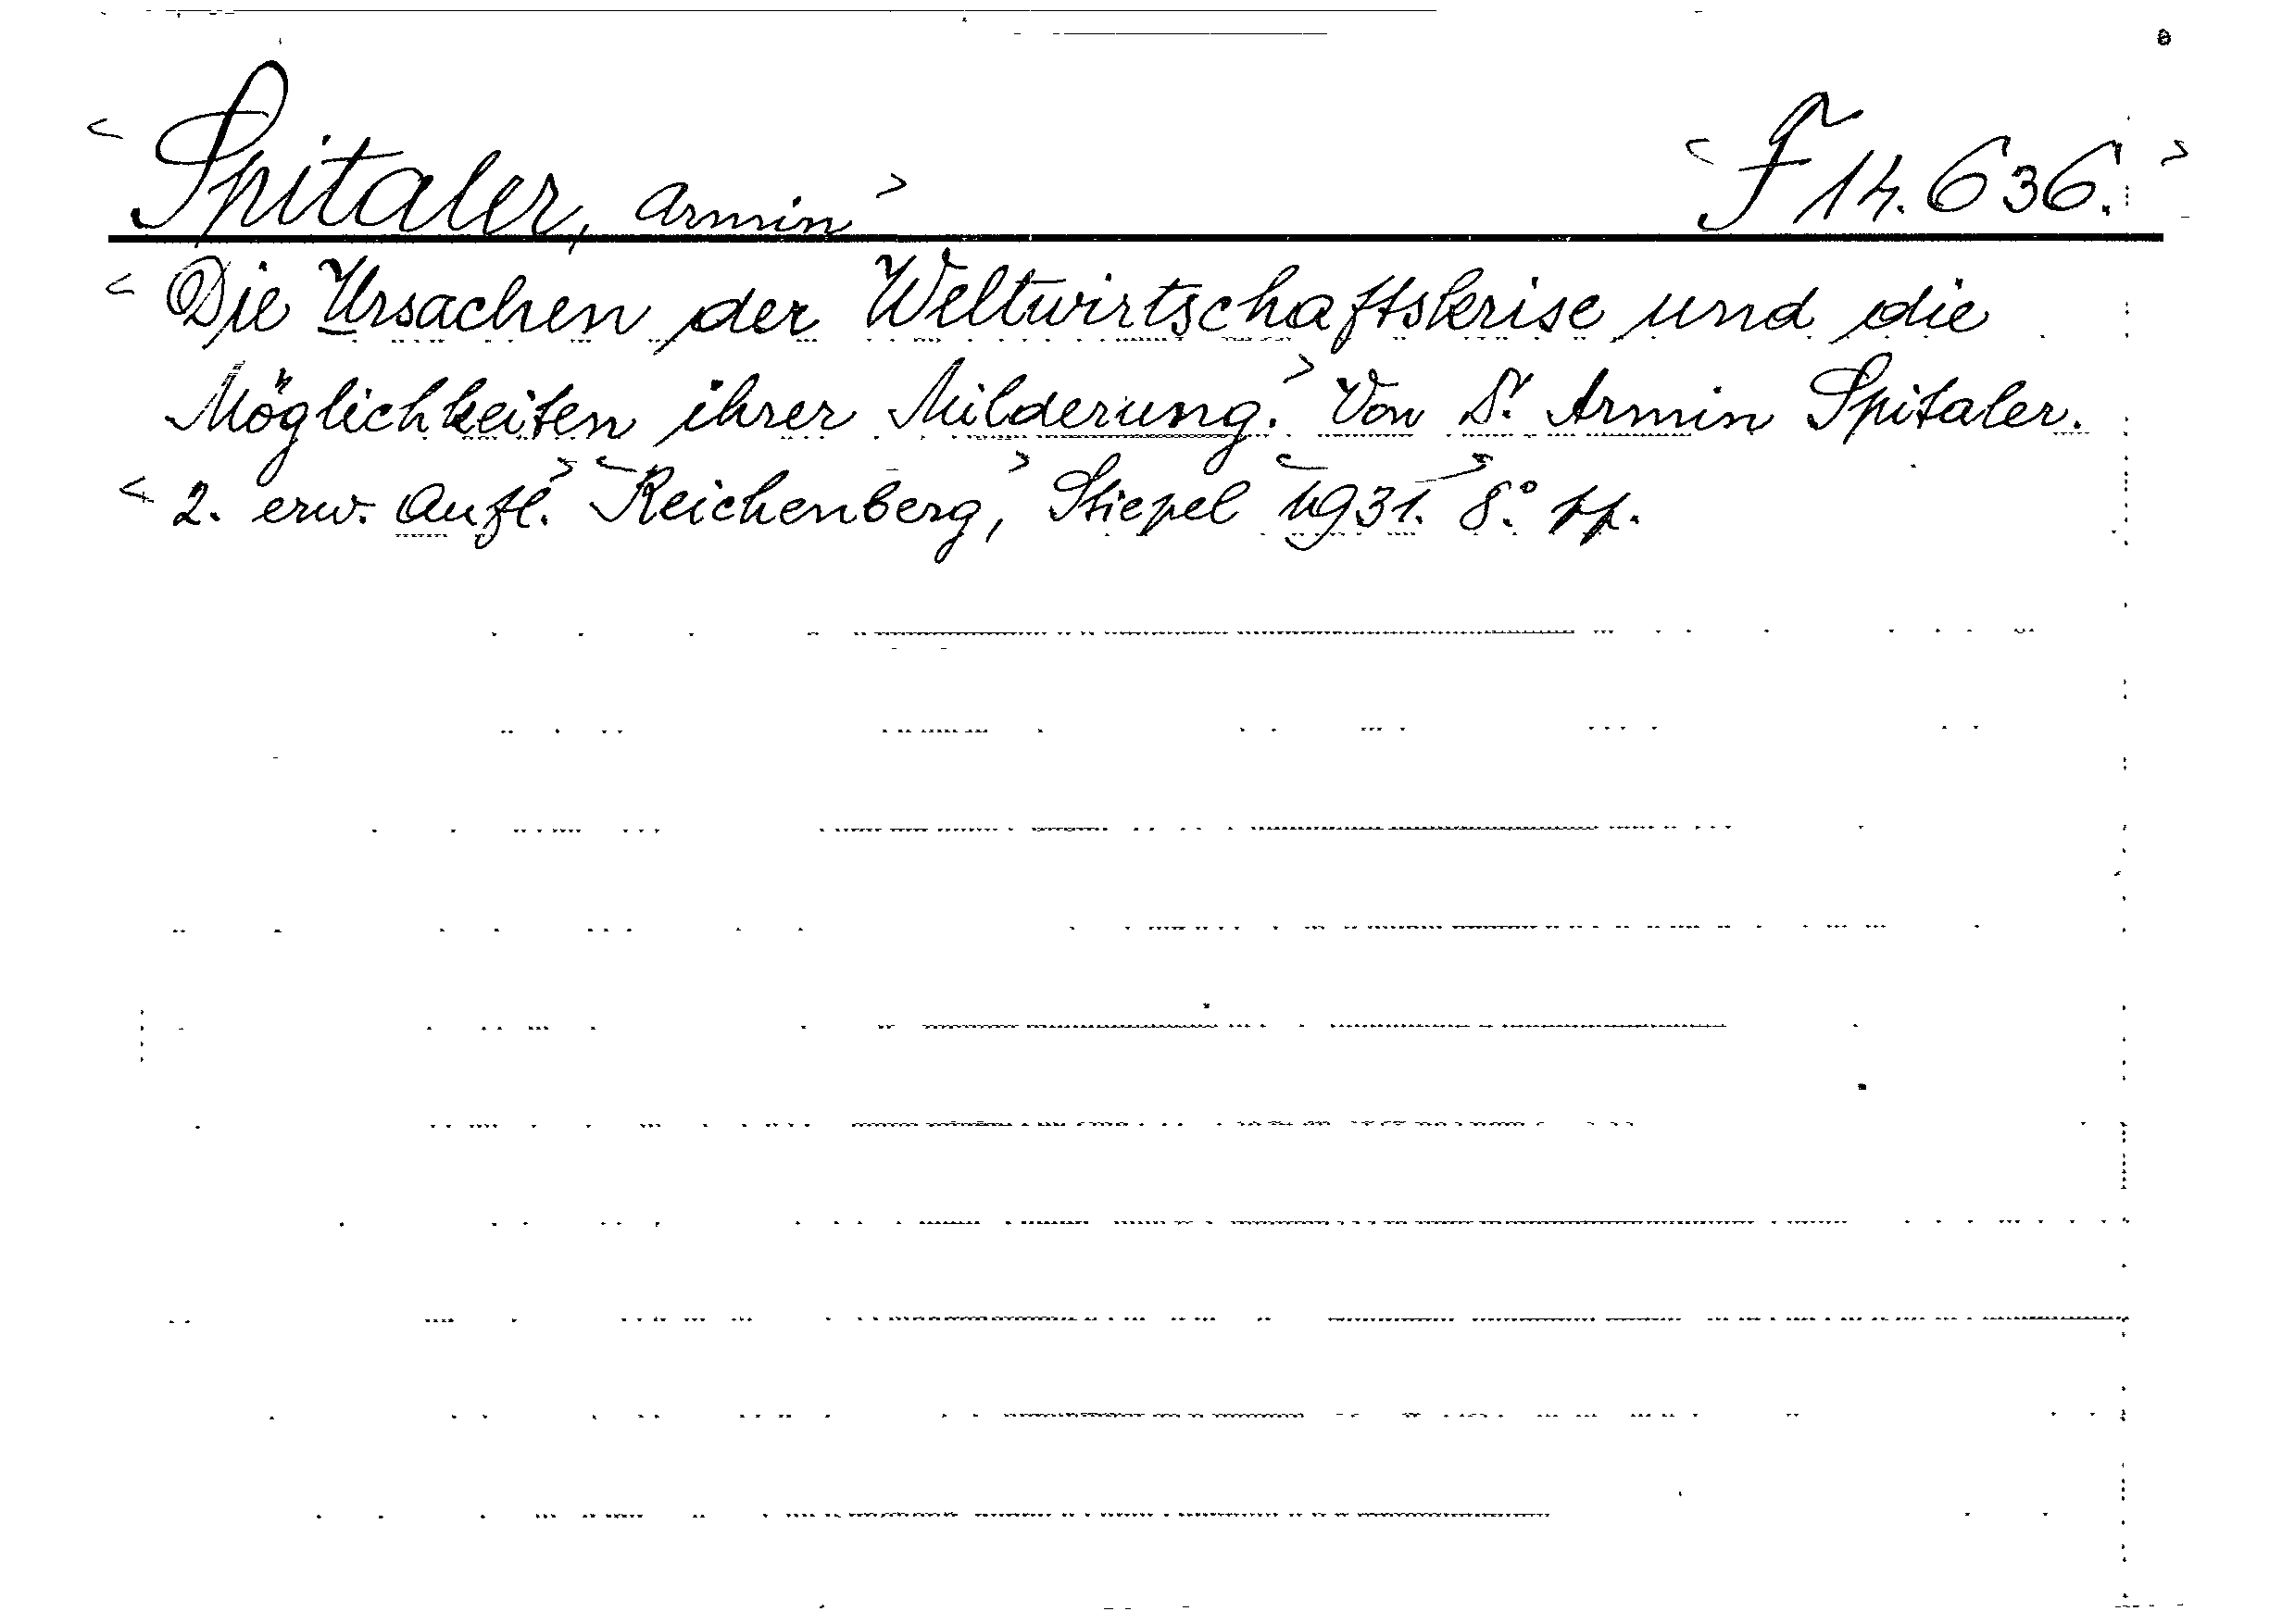 < Spitaler, Armin > < F 14.636. >
< Die Ursachen der Weltwirtschaftskrise und die
Möglichkeiten ihrer Milderung. > Von Dr. Armin Spitaler.
< 2. erw. Aufl. > < Reichenberg, > Stiepel < 1931. > 8.°